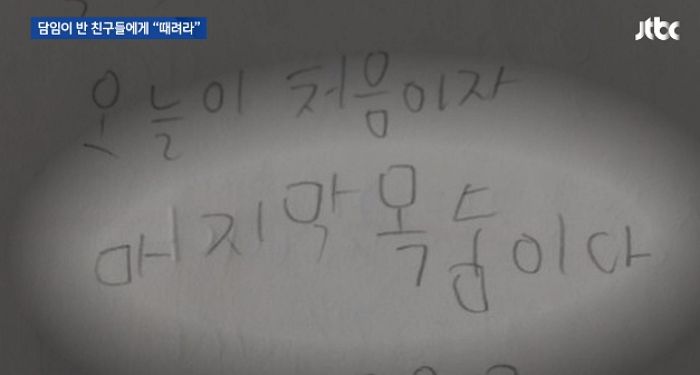 담임이 반 친구들에게 “때려라”
jtbc
오늘이 처음이자
마지막 목숨이다